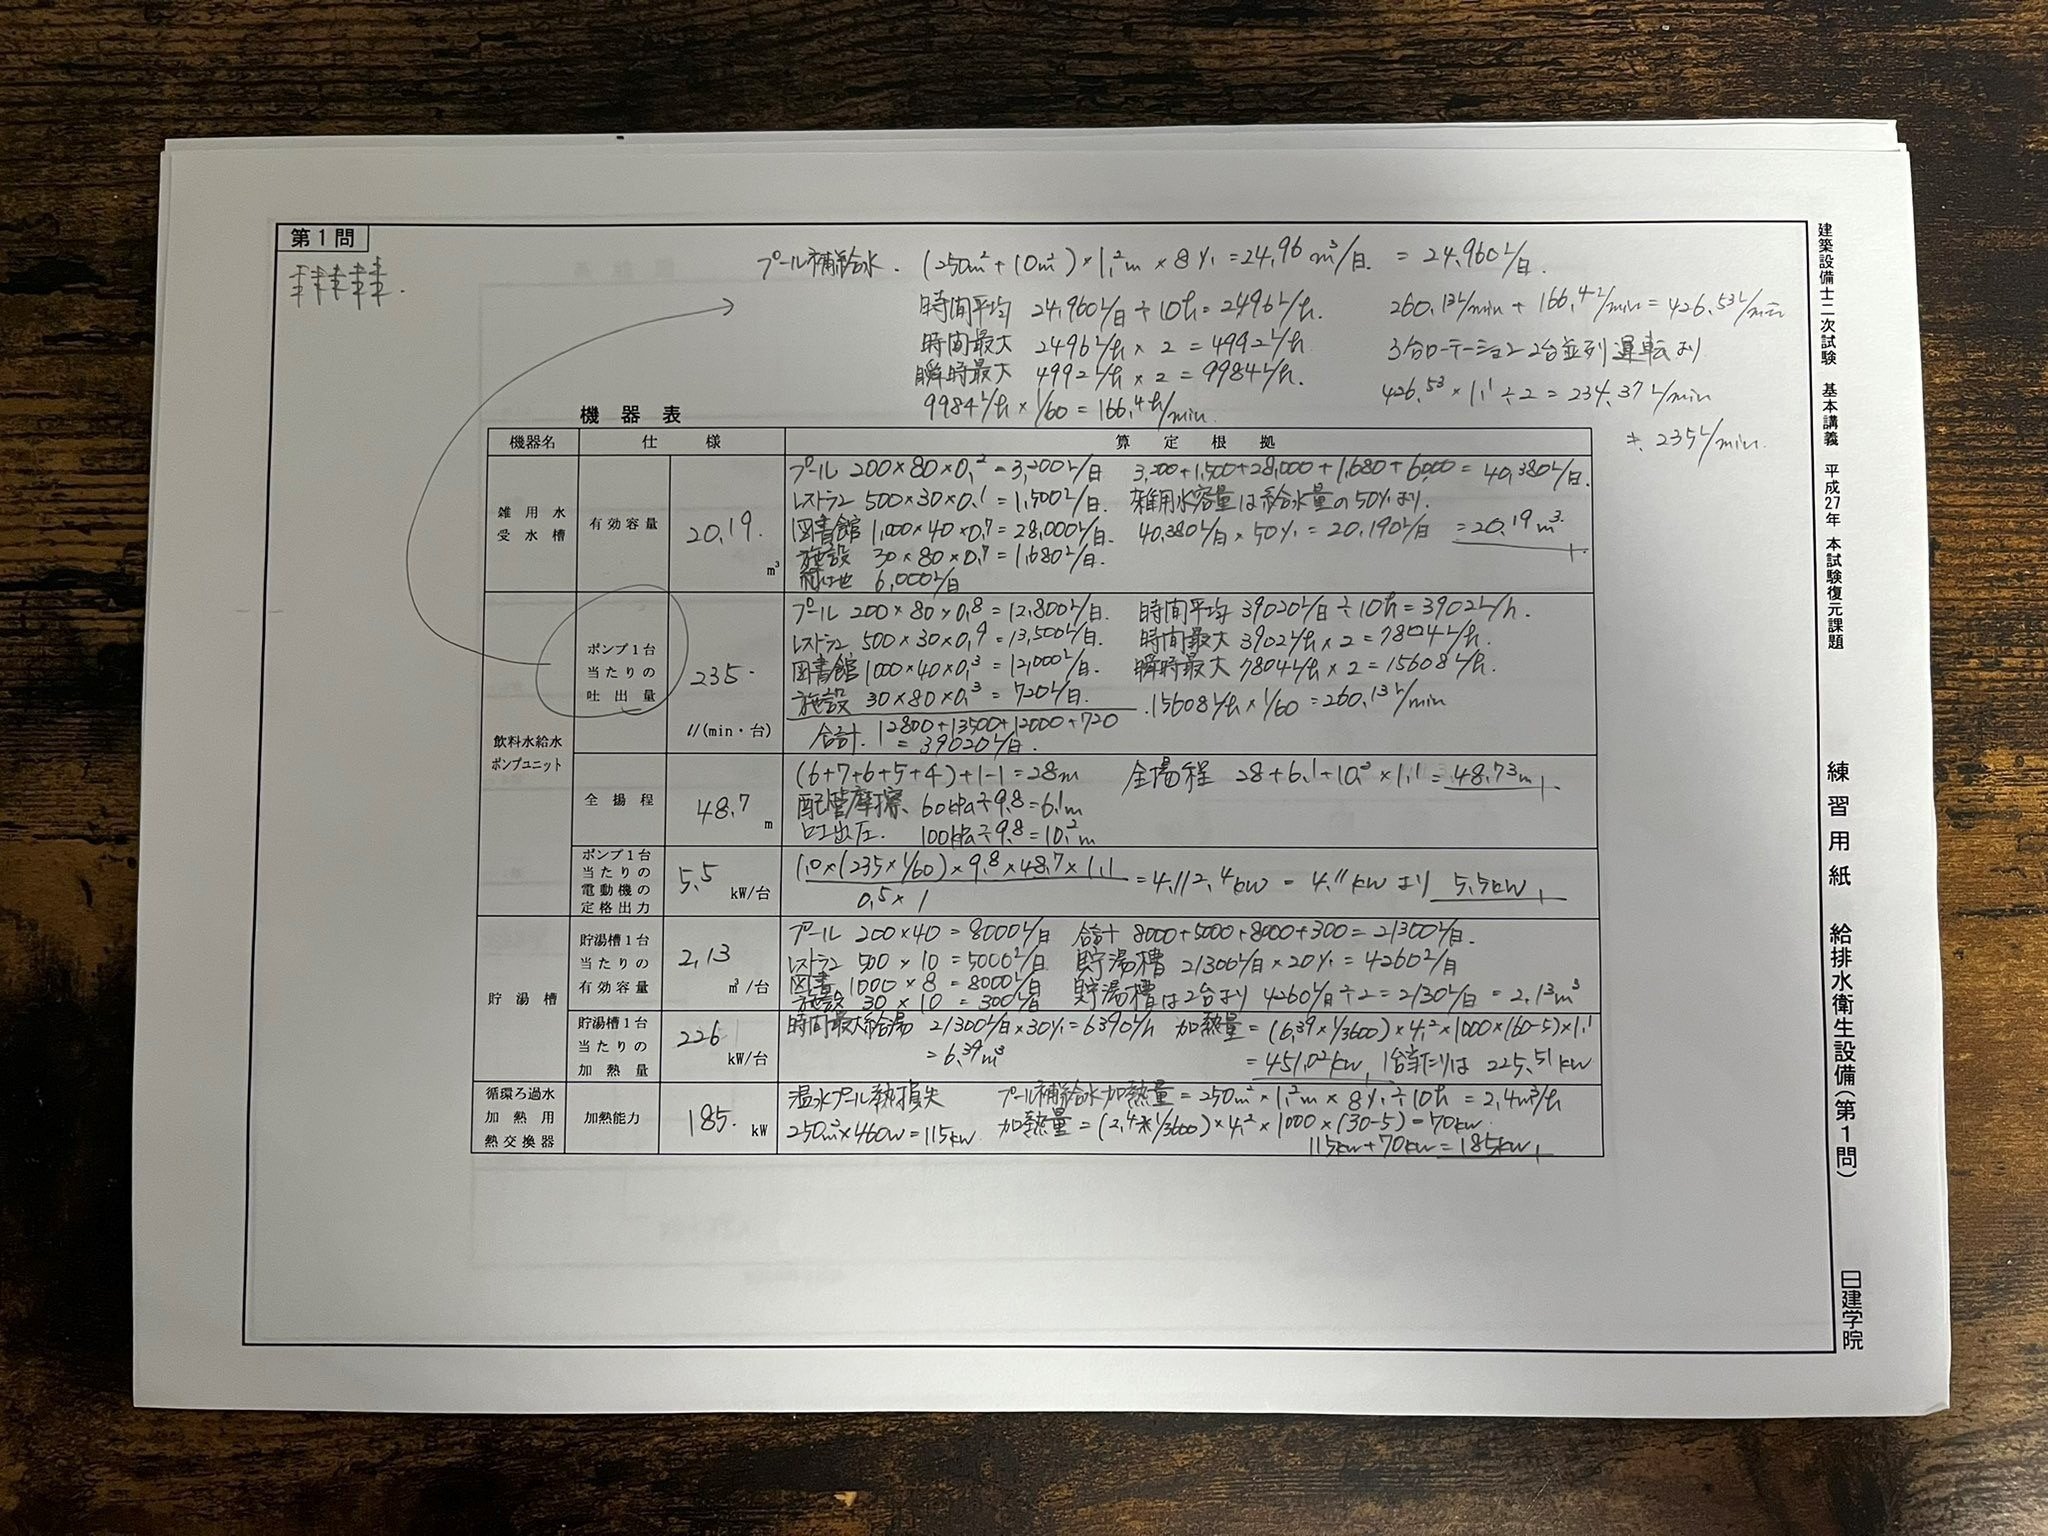 第1問
プール補給水. (250m²+10m²)×1.2m×8%=24.96m³/日. =24,960L/日.
時間平均 24,960L/日÷10h=2496L/h.
時間最大 2496L/h×2=4992L/h
瞬時最大 4992L/h×2=9984L/h.
9984L/h×1/60=166.4L/min.
260.13L/min+166.4L/min=426.53L/min
3台ローテーション2台並列運転より
426.53×1.1÷2=234.37L/min
≒235L/min.
機器表
機器名 仕様 算定根拠
雑用水受水槽
有効容量
20.19. m³
プール 200×80×0.2=3,200L/日
レストラン 500×30×0.1=1,500L/日.
図書館 1,000×40×0.7=28,000L/日.
施設 30×80×0.7=1,680L/日.
緑地 6,000L/日
3,200+1,500+28,000+1,680+6,000=40,380L/日.
雑用水容量は給水量の50%より.
40,380L/日×50%=20,190L/日 =20.19m³.
飲料水給水ポンプユニット
ポンプ1台当たりの吐出量
235. ℓ/(min・台)
プール 200×80×0.8=12,800L/日.
レストラン 500×30×0.9=13,500L/日.
図書館 1000×40×0.3=12,000L/日.
施設 30×80×0.3=720L/日.
合計. 12800+13500+12000+720
=39020L/日.
時間平均 39020L/日÷10h=3902L/h.
時間最大 3902L/h×2=7804L/h.
瞬時最大 7804L/h×2=15608L/h.
.15608L/h×1/60=260.13L/min
全揚程
48.7 m
(6+7+6+5+4)+1-1=28m
配管摩擦 60kPa÷9.8=6.1m
吐出圧. 100kPa÷9.8=10.2m
全揚程 28+6.1+10.2×1.1=48.73m
ポンプ1台当たりの電動機の定格出力
5.5 kW/台
1.0×(235×1/60)×9.8×48.7×1.1
0.5×1
=4,112.4kW=4.11kWより 5.5kW
貯湯槽
貯湯槽1台当たりの有効容量
2.13 m³/台
プール 200×40=8000L/日
レストラン 500×10=5000L/日
図書 1000×8=8000L/日
施設 30×10=300L/日
合計 8000+5000+8000+300=21300L/日.
貯湯槽 21300L/日×20%=4260L/日
貯湯槽は2台より 4260L/日÷2=2130L/日=2.13m³
貯湯槽1台当たりの加熱量
226 kW/台
時間最大給湯 21300L/日×30%=6390L/h
=6.39m³
加熱量=(6.39×1/3600)×4.2×1000×(60-5)×1.1
=451.02kW, 1台当たりは 225.51kW
循環ろ過水加熱用熱交換器
加熱能力
185. kW
温水プール熱損失
250m²×460W=115kW
プール補給水加熱量=250m²×1.2m×8%÷10h=2.4m³/h
加熱量=(2.4×1/3600)×4.2×1000×(30-5)=70kW
115kW+70kW=185kW
建築設備士二次試験 基本講義 平成27年 本試験復元課題
練習用紙 給排水衛生設備(第1問)
日建学院